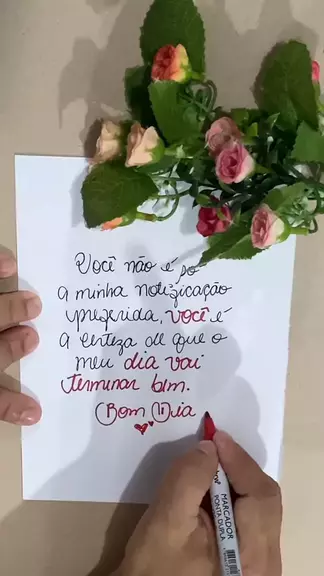 Você não é só
a minha notificação
preferida, você é
a certeza de que o
meu dia vai
terminar bem.
Bom Dia
MARCADOR
PONTA DUPLA